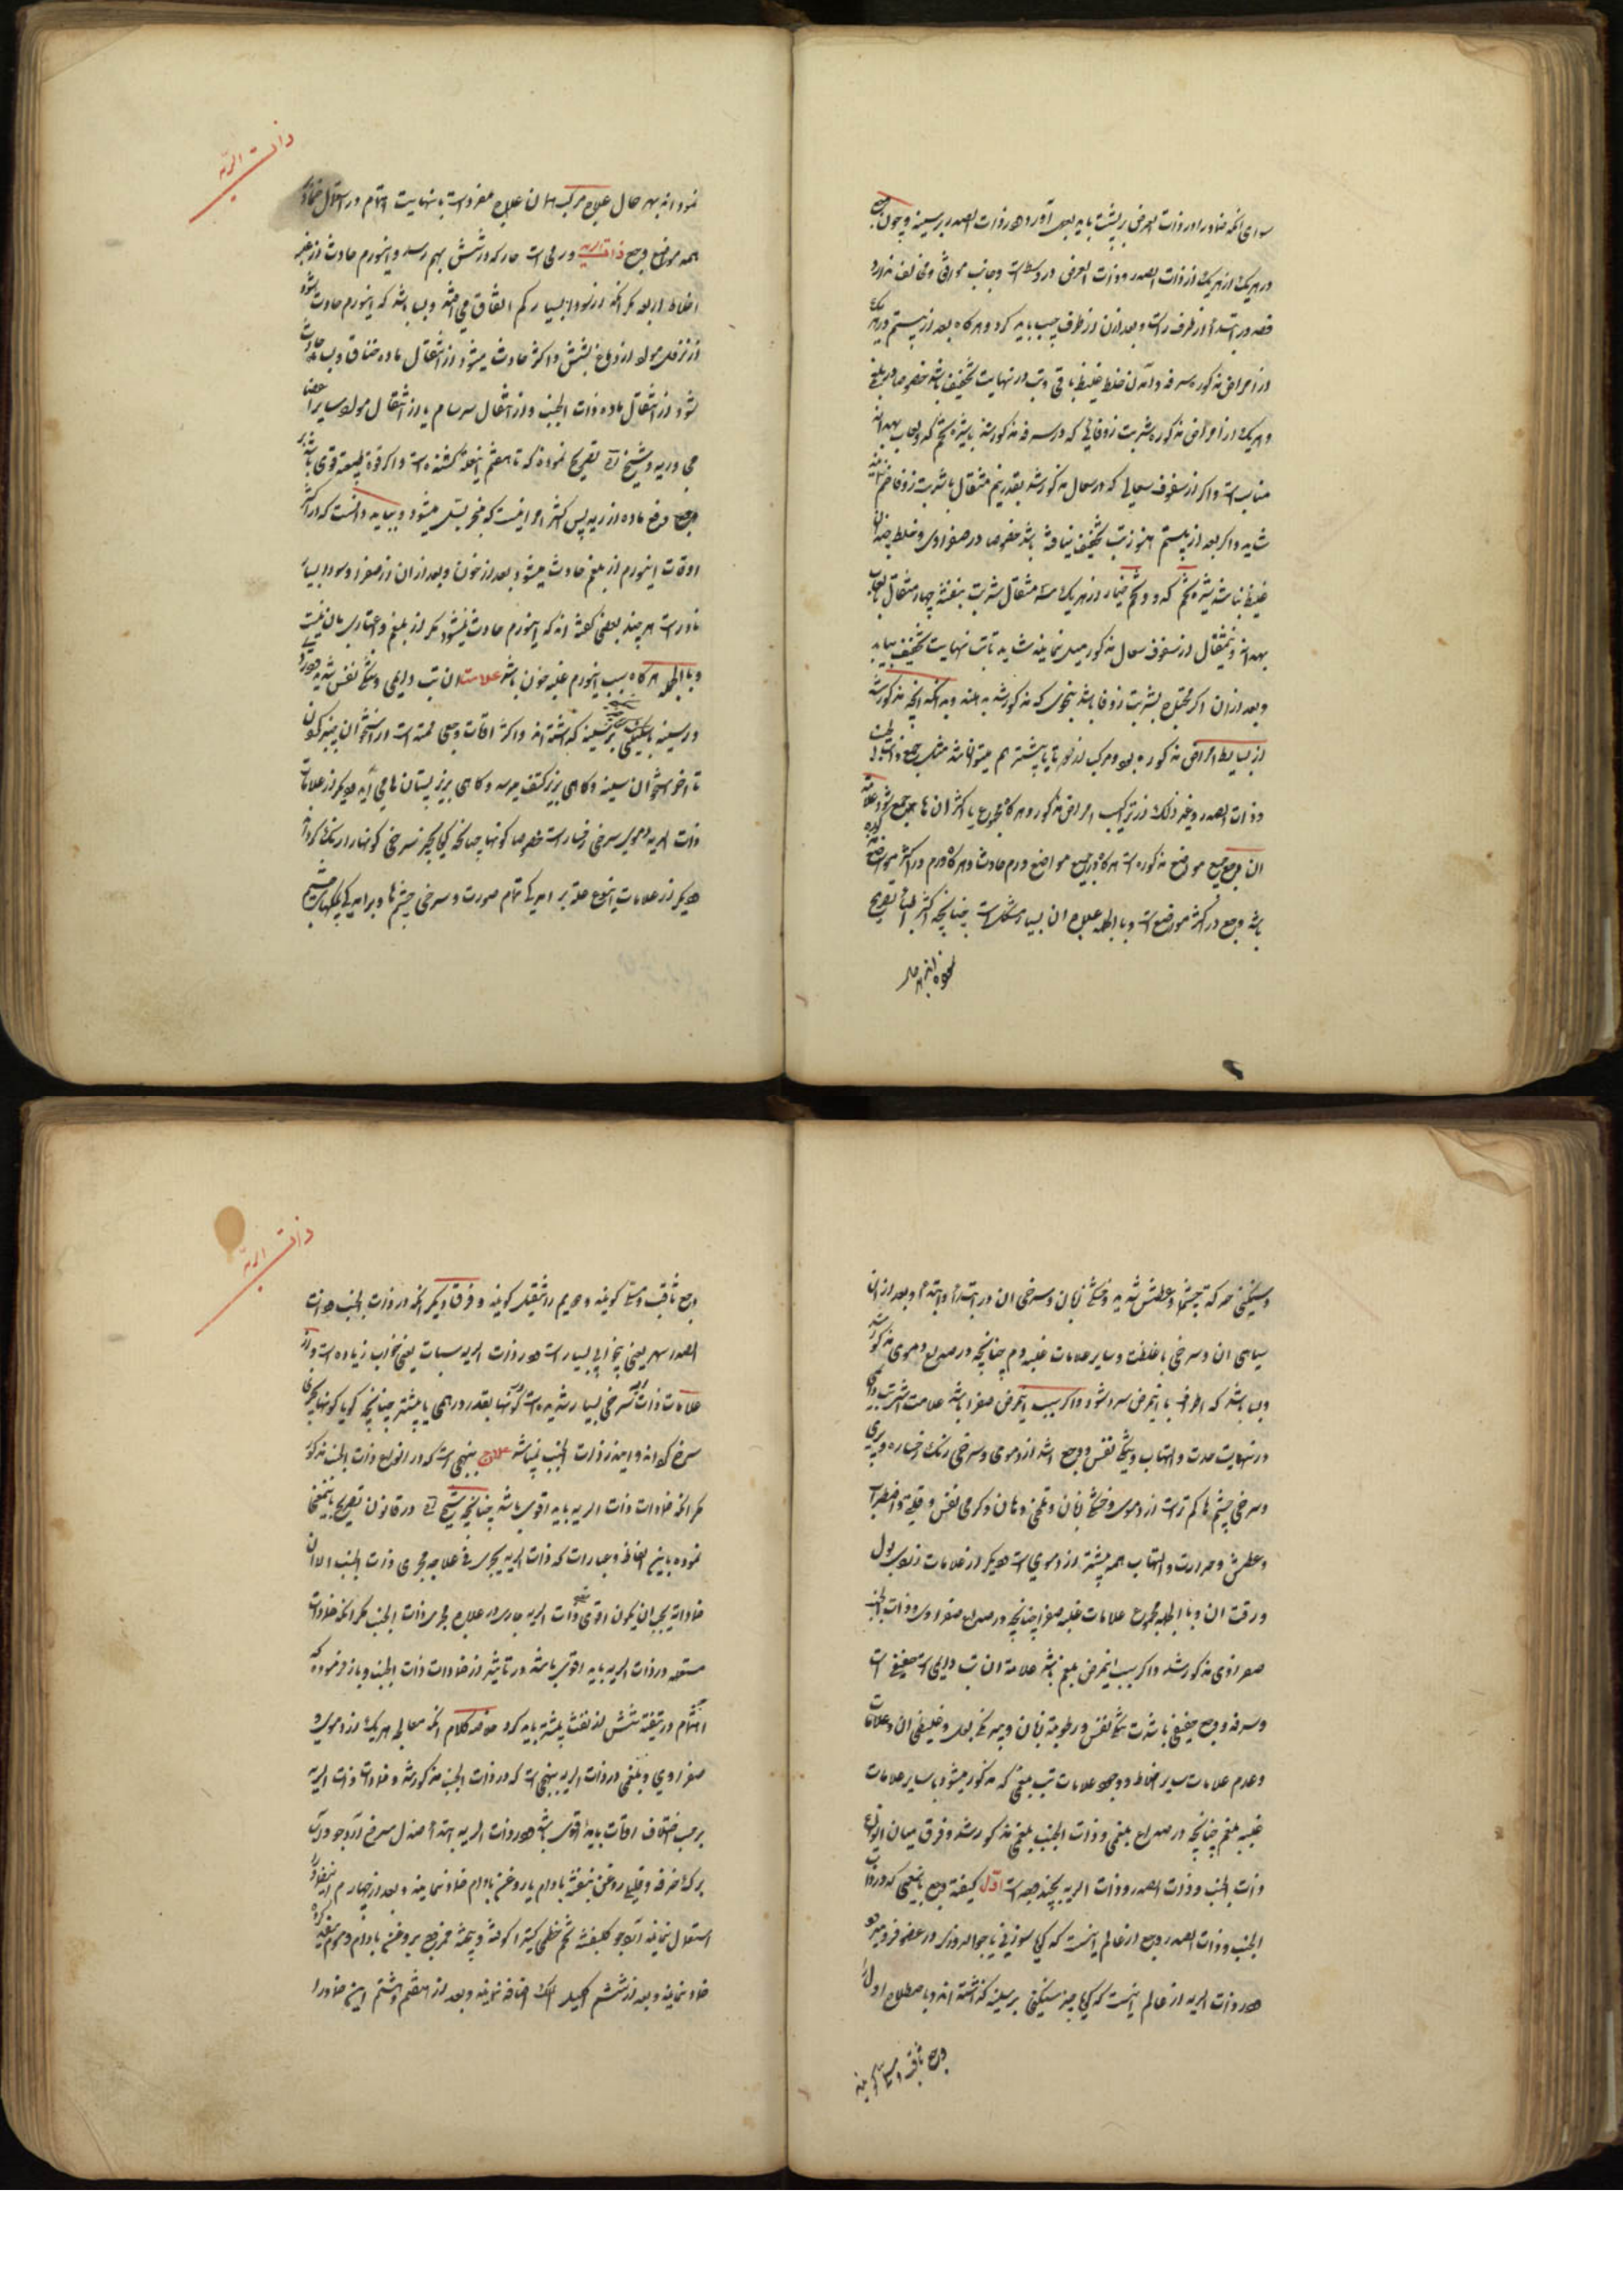 سوای آنکه ضماد را در ذات العرض بر پشت باید بعمل آورد و در ذات الصدر بر سینه و چون
در هر یک از ذات الصدر و ذات العرض در وسط است و جانب موافق و مخالف ندارد
فصد در ابتدا از طرف راست و بعد از آن از طرف چپ باید کرد و هرگاه بعد از بیستم در هر یک
از امراض مذکوره سرفه و آمدن خلط غلیظ باقی و تب در نهایت تخفیف باشد خصوصا در بلغمی
و هر یک از امراض مذکوره شربت زوفائی که در سرفه مذکور شد با شیره تخم کدو و لعاب بهدانه
مناسب است و اگر از سفوف سعالی که در سعال مذکور شد بقدر نیم مثقال با شربت زوفا ضم نمایند
شاید و اگر بعد از بیستم هنوز تب تخفیف نیافته باشد خصوصا در صفراوی و خلط چندان
غلیظ نباشد شیره تخم کدو و تخم خیار از هر یک سه مثقال شربت بنفشه چهار مثقال با لعاب
بهدانه و نیم مثقال از سفوف سعال مذکور میل نمایند شاید تا تب نهایت تخفیف بیابد
و بعد از آن اگر محتاج بشربت زوفا باشد بنحوی که مذکور شد بدهند و بدانکه آنچه مذکور شد
از بسایط امراض مذکوره بود و مرکب از دو تا یا بیشتر هم میتواند شد مثل جمع ذات الجنب
و ذات الصدر و غیر ذلک از ترکیب امراض مذکور و هرگاه مجموع یا اکثر آن ها جمع شود علامت
آن وجع جمیع مواضع مذکوره است هرگاه در جمیع مواضع ورم حادث و هرگاه ورم در اکثر مواضع
باشد وجع در اکثر مواضع است و بالجمله علاج آن بسیار مشکل است چنانچه اکثر اطبا تصریح
نموده اند بهر حال
ذات الریه
نموده اند بهر حال علاج مرکب همان علاج مفرد است با نهایت اهتمام در استعمال ضماد
همه مواضع وجع ذات الریه ورمی است حار که در شش بهم رسد و اینورم حادث از غیر
اخلاط اربعه مگر آنکه از سودا بسیار کم اتفاق می افتد و بسا باشد که اینورم حادث شود
از نزله مولد از دماغ بشش و اکثر حادث میشود از انتقال ماده خناق و بسا حادث
شود از انتقال ماده ذات الجنب و از انتقال سرسام یا از انتقال مواد سایر اعضا
می در ریه و شیخ تصریح نموده که تا هفتم اینعله کشنده است و اگر قوة طبیعة قوی باشد بر
دفع ماده از ریه پس اکثر امر اینست که منجر بسل میشود و بباید دانست که در اکثر
اوقات اینورم از بلغم حادث میشود بعد از خون و بعد از آن از صفرا و سودا بسیار
نادر است هر چند بعضی گفته اند که اینورم حادث نمیشود مگر از بلغم و اعتباری بآن نیست
و بالجمله هرگاه سبب اینورم غلبه خون باشد علامت آن تب دایمی و تنگی نفس شدید
در سینه با سنگینی بر سینه گذاشته اند و اکثر اوقات وجع ممتد است از استخوان چنبر گردن
تا آخر استخوان سینه و گاهی بزیر کتف میرسد و گاهی بزیر پستان ها می آید دیگر از علامات
ذات الریه دموی سرخی رخسار است خصوصا گونها چنانچه گویا بچیز سرخی گونها را رنگ کرده اند
دیگر از علامات اینوع علة برآمدگی تمام صورت و سرخی چشم ها و برآمدگی پلکهای چشم
و سنگینی حرکت چشمها و عطش شدید و خشکی زبان و سرخی آن در ابتدا و بعد از آن
سیاهی آن و سرخی با غلظت و سایر علامات غلبه دم چنانچه در صداع دموی مذکور شد
و بسا باشد که اطراف با اینمرض سرد شود و اگر سبب اینمرض صفرا باشد علامت اشتداد تب دایمی
در نهایت حدت و التهاب و تنگی نفس و وجع اشد از دموی و سرخی رنگ رخساره و
و سرخی چشم ها کم تر است از دموی و خشکی زبان و تلخی دهان و گرمی نفس و قلق و اضطراب
و عطش و حرارت و التهاب همه بیشتر از دموی است دیگر از علامات زردی بول
و رقت آن و بالجمله مجموع علامات غلبه صفرا چنانچه در صداع صفراوی و ذات الجنب
صفراوی مذکور شد و اگر سبب اینمرض بلغم باشد علامة آن تب دایمی است خفیف است
و سرفه و وجع خفیف با شدت تنگی نفس و رطوبة زبان و بیرنگی بول و غلیظی آن و علامات
و عدم علامات سایر اخلاط و وجود علامات تب بلغمی که مذکور میشود با سایر علامات
غلبه بلغم چنانچه در صداع بلغمی و ذات الجنب بلغمی مذکور شد و فرق میان انواع
ذات الجنب و ذات الصدر و ذات الریه بچند وجه است اول کیفیة وجع باینمعنی که در ذات
الجنب و ذات الصدر وجع از عالم اینست که گویا سوزنی یا جوالدوزی در عضو فرو میرود
و در ذات الریه از عالم اینست که گویا چیز سنگینی بر سینه گذاشته اند و باصطلاح اول را
وجع ثاقب و مسلی گویند
ذات الریه
وجع ثاقب و مسلی گویند و دویم را مثقل گویند و فرق دیگر آنکه در ذات الجنب و ذات
الصدر سهر یعنی بیخوابی بسیار است و در ذات الریه سبات یعنی خواب زیاده است و از
علامات ذات الریه سرخی بسیار شدید است در گونها بقدر درهمی یا بیشتر چنانچه گویا گونها بچیزی
سرخ کرده اند و این در ذات الجنب نمیباشد علاج بنهجی است که در انواع ذات الجنب مذکور
مگر آنکه ضمادات ذات الریه باید اقوی باشد چنانچه شیخ در قانون تصریح باینمعنی
نموده باین الفاظ و عبارات که ذات الریه یجری فی علاجه مجری ذات الجنب الا ان
ضماداته یجب ان یکون اقوی ذات الریه جاری در علاج مجری ذات الجنب مگر آنکه ضمادات
مستعمله در ذات الریه باید اقوی باشد در تاثیر از ضمادات ذات الجنب و باز فرموده که
اهتمام در تنقیه شش از نفث بیشتر باید کرد خلاصه کلام آنکه معالجه هر یک از دموی و
صفراوی و بلغمی در ذات الریه بنهجی است که در ذات الجنب مذکور شد و ضمادات ذات الریه
بر حسب اختلاف اوقات باید اقوی باشد و در ذات الریه ابتدا صندل سرخ آرد جو و آب
برگ خرفه و قلیلی روغن بنفشه بادام یا روغن بادام ضماد نمایند و بعد از چهارم این ضماد را
استعمال نمایند آرد جو گل بنفشه تخم خطمی کتیرا کوفته و بیخته ممزوج بروغن بادام و موم سفید کرده
ضماد نمایند و بعد از ششم اکلیل الملک اضافه نمایند و بعد از هفتم و هشتم این ضماد را